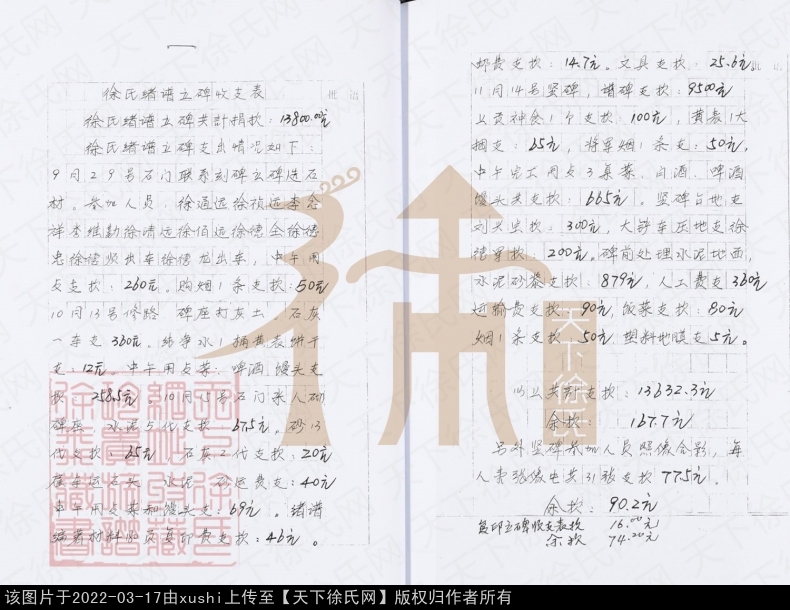 徐氏绪谱立碑收支表
徐氏绪谱立碑共计捐款：13800.00元
徐氏绪谱立碑支出情况如下：
9月29号石门联系刻碑立碑选石
材。参加人员，徐通远徐祯远李念
祥李维勤徐清远徐伯远徐德全徐德
忠徐德顺出车徐德龙出车，中午用
友支款：260元。购烟1条支款：50元
10月13号修路 碑座打灰土。石灰
一车支360元。纯净水1桶黄表饼干
支：12元。中午用友菜、啤酒馒头支
款 258.5元，10月15号石门来人砌
碑座，水泥5代支款：67.5元，砂13
代支款：65元 石灰2代支款：20元
支款 水泥 砂运费支：40元
中午用友菜和馒头支：69元。绪谱
材料 复印费支款：46元。
邮费支款：14.7元。文具支款：25.6元
11月14号竖碑，请碑支款：9500元
上炎神会1个支款：100元，黄表1大
捆支：65元，将军烟1条支：50元，
中午完工用友3桌菜、白酒、啤酒
馒头共支款：665元。竖碑占地支
刘头出款：300元，大铧车压地支徐
德军款：200元。碑前处理水泥地面，
水泥砂浆支款：879元，人工费支360元
运输费支款：90元，饭菜支款：80元
烟1条支款：50元，塑料地膜支5元。
以上共计支款：13632.3元
余款：167.7元
另外竖碑参加人员照像合影，每
人壹张像电共31张支款77.5元。
余款：90.2元
复印立碑收支表款 16.00元
余款 74.20元
天下徐氏
该图片于2022-03-17由xushi上传至【天下徐氏网】版权归作者所有